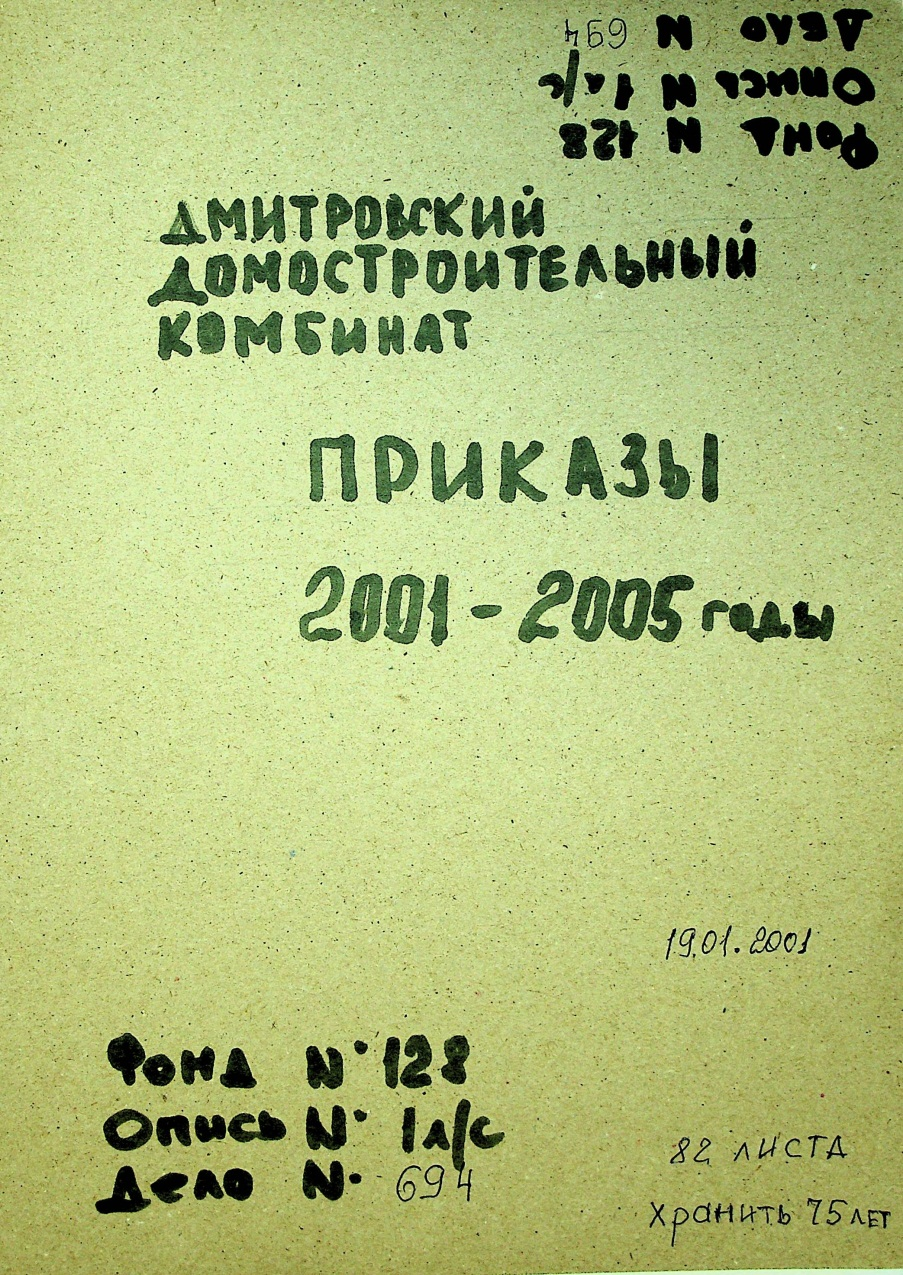 Дело N 694
Опись N 1 л/с
Фонд N 128
ДМИТРОВСКИЙ
ДОМОСТРОИТЕЛЬНЫЙ
КОМБИНАТ
ПРИКАЗЫ
2001 - 2005 годы
19.01.2001
Фонд N° 128
Опись N° 1 л/с
Дело N° 694
82 ЛИСТА
хранить 75 лет